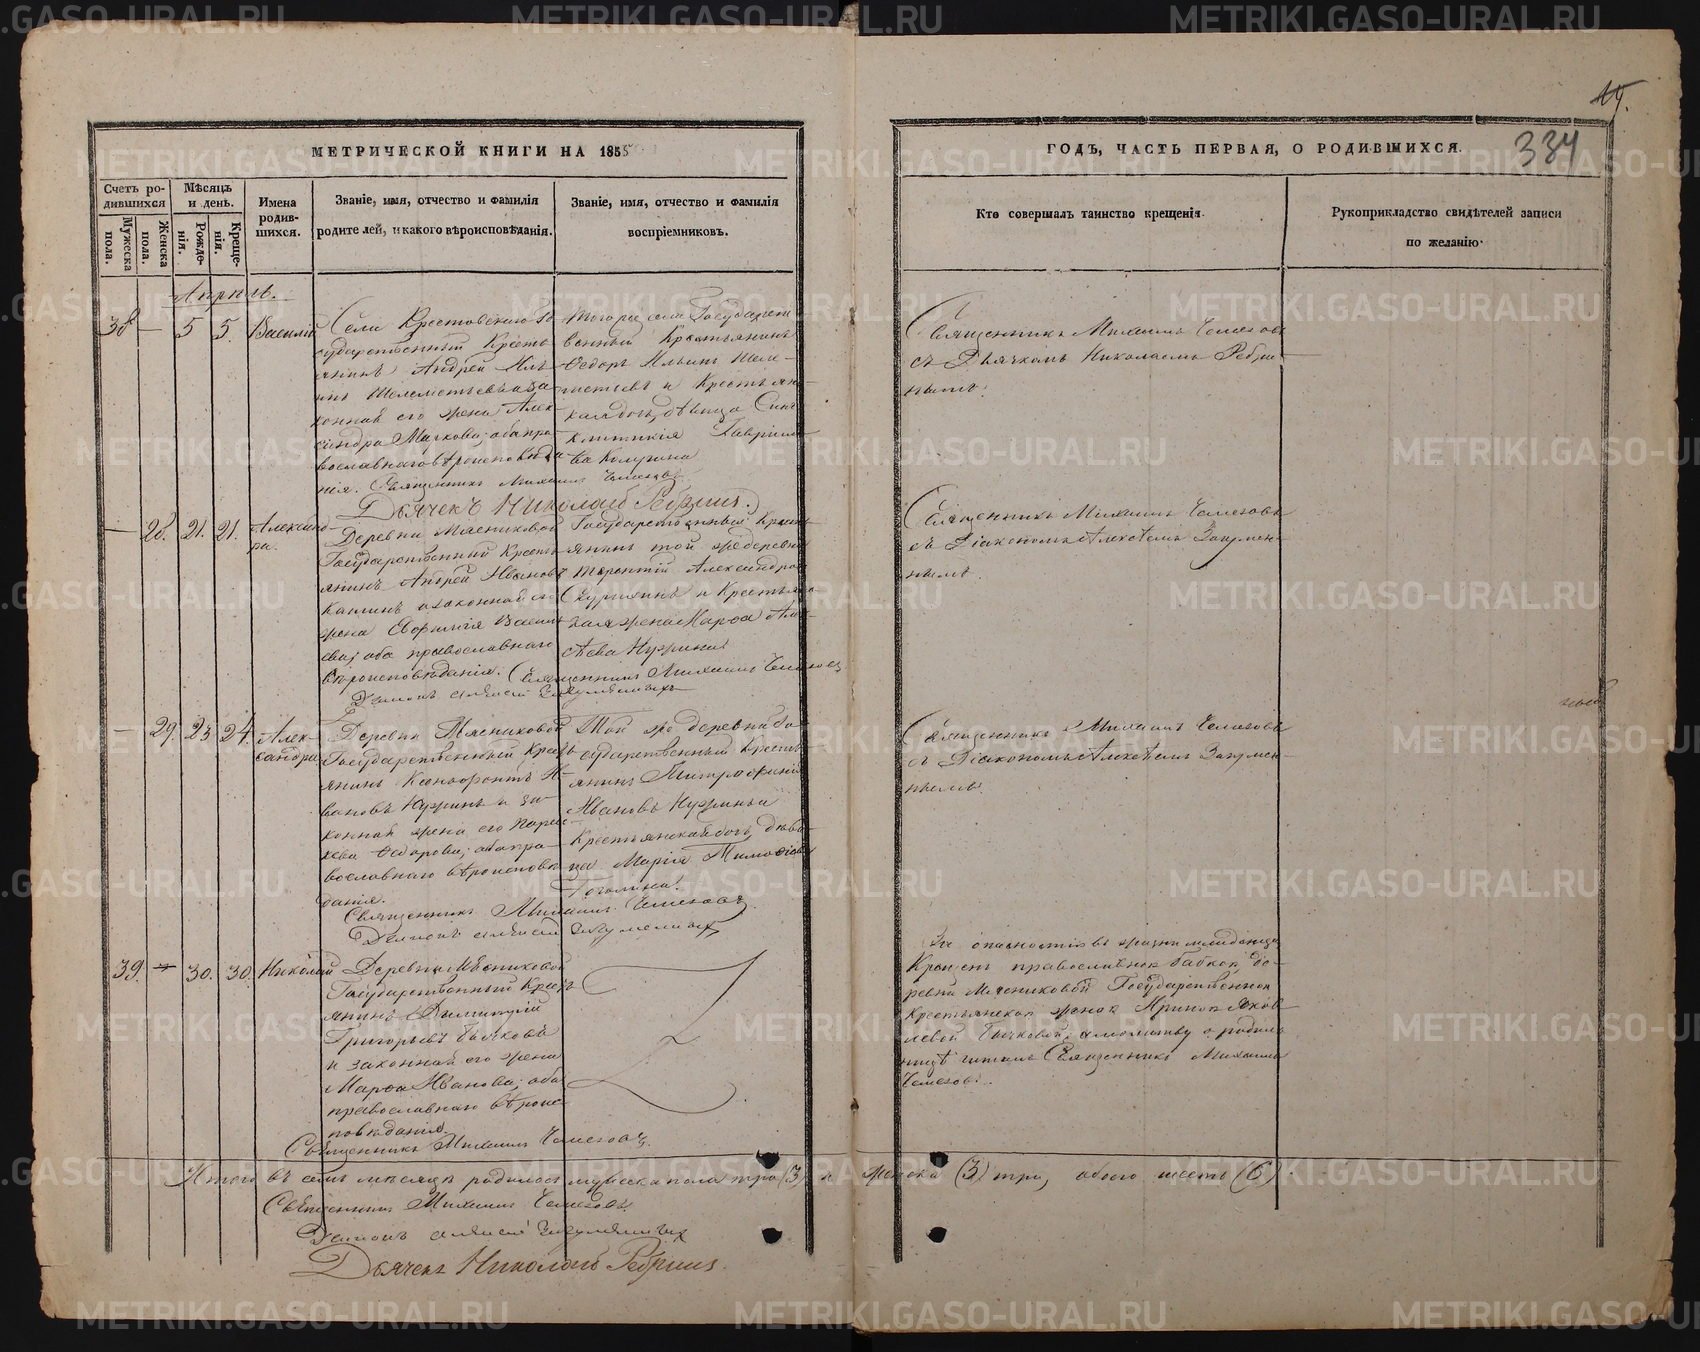 14.
334
МЕТРИЧЕСКОЙ КНИГИ НА 1855
ГОДЪ, ЧАСТЬ ПЕРВАЯ, О РОДИВШИХСЯ.
Счетъ ро-
дившихся
Мужеска
пола.
Женска
пола.
Мѣсяцъ
и день.
Рожде-
нія.
Креще-
нія.
Имена
родив-
шихся.
Званіе, имя, отчество и фамилія
родителей, и какого вѣроисповѣданія.
Званіе, имя, отчество и фамилія
воспріемниковъ.
Кто совершалъ таинство крещенія.
Рукоприкладство свидѣтелей записи
по желанію.
Апрѣль.
38 — 5 5. Василій
Села Крестовскаго Го-
сударственный Кресть-
янинъ Андрей Иль-
инъ Шелеметьевъ и за-
конная его жена Алек-
сандра Маркова; оба пра-
вославнаго вѣроисповѣда-
нія. Священникъ Михаилъ Чемезовъ
Дьячекъ Николай Ребринъ.
того же села Государст-
венный Крестьянинъ
Ѳедоръ Ильинъ Шеле-
метьевъ и Крестьян-
ская дочь, дѣвица Син-
клитикія Гаврило-
ва
Священникъ Михаилъ Чемезовъ
съ Дьячкомъ Николаемъ Ребри-
нымъ.
— 28. 21. 21. Александ-
ра.
Деревни Мясниковой
Государственный Кресть-
янинъ Андрей Ивановъ
и законная его
жена Евфимія Василь-
ева; оба православнаго
вѣроисповѣданія. Священникъ Михаилъ Чемезовъ
Діаконъ Алексѣй
Государственный Кресть-
янинъ той же деревни
Терентій Александровъ
и Крестьян-
ская жена Марѳа Алек-
сѣева
Священникъ Михаилъ Чемезовъ
съ Діакономъ Алексѣемъ
нымъ.
— 29. 23 24. Алек-
сандра
Деревни Мясниковой
Государственный Кресть-
янинъ Ксенофонтъ И-
вановъ и за-
конная жена его Парас-
кева Ѳедорова; оба пра-
вославнаго вѣроисповѣ-
данія.
Священникъ Михаилъ Чемезовъ
Діаконъ Алексѣй
Той же деревни Го-
сударственный Кресть-
янинъ Митрофаній
Ивановъ и
Крестьянская дочь, дѣви-
ца Марія Тимоѳеева
Гоголина.
Священникъ Михаилъ Чемезовъ
съ Діакономъ Алексѣемъ
нымъ.
39. — 30. 30. Николай
Деревни Мясниковой
Государственный Кресть-
янинъ Димитрій
Григорьевъ Бычковъ
и законная его жена
Марѳа Иванова; оба
православнаго вѣроис-
повѣданія.
Священникъ Михаилъ Чемезовъ.
За опасностію въ жизни младенца
Крещенъ православною бабкою де-
ревни Мясниковой Государственною
крестьянскою женою Ириною Яков-
левой Бычковой, а молитву о родиль-
ницѣ читалъ Священникъ Михаилъ
Чемезовъ.
Итого въ семъ мѣсяцѣ родилось мужеска пола три (3) и женска (3) три, обоего шесть (6).
Священникъ Михаилъ Чемезовъ.
Діаконъ Алексѣй
Дьячекъ Николай Ребринъ.
METRIKI.GASO-URAL.RU